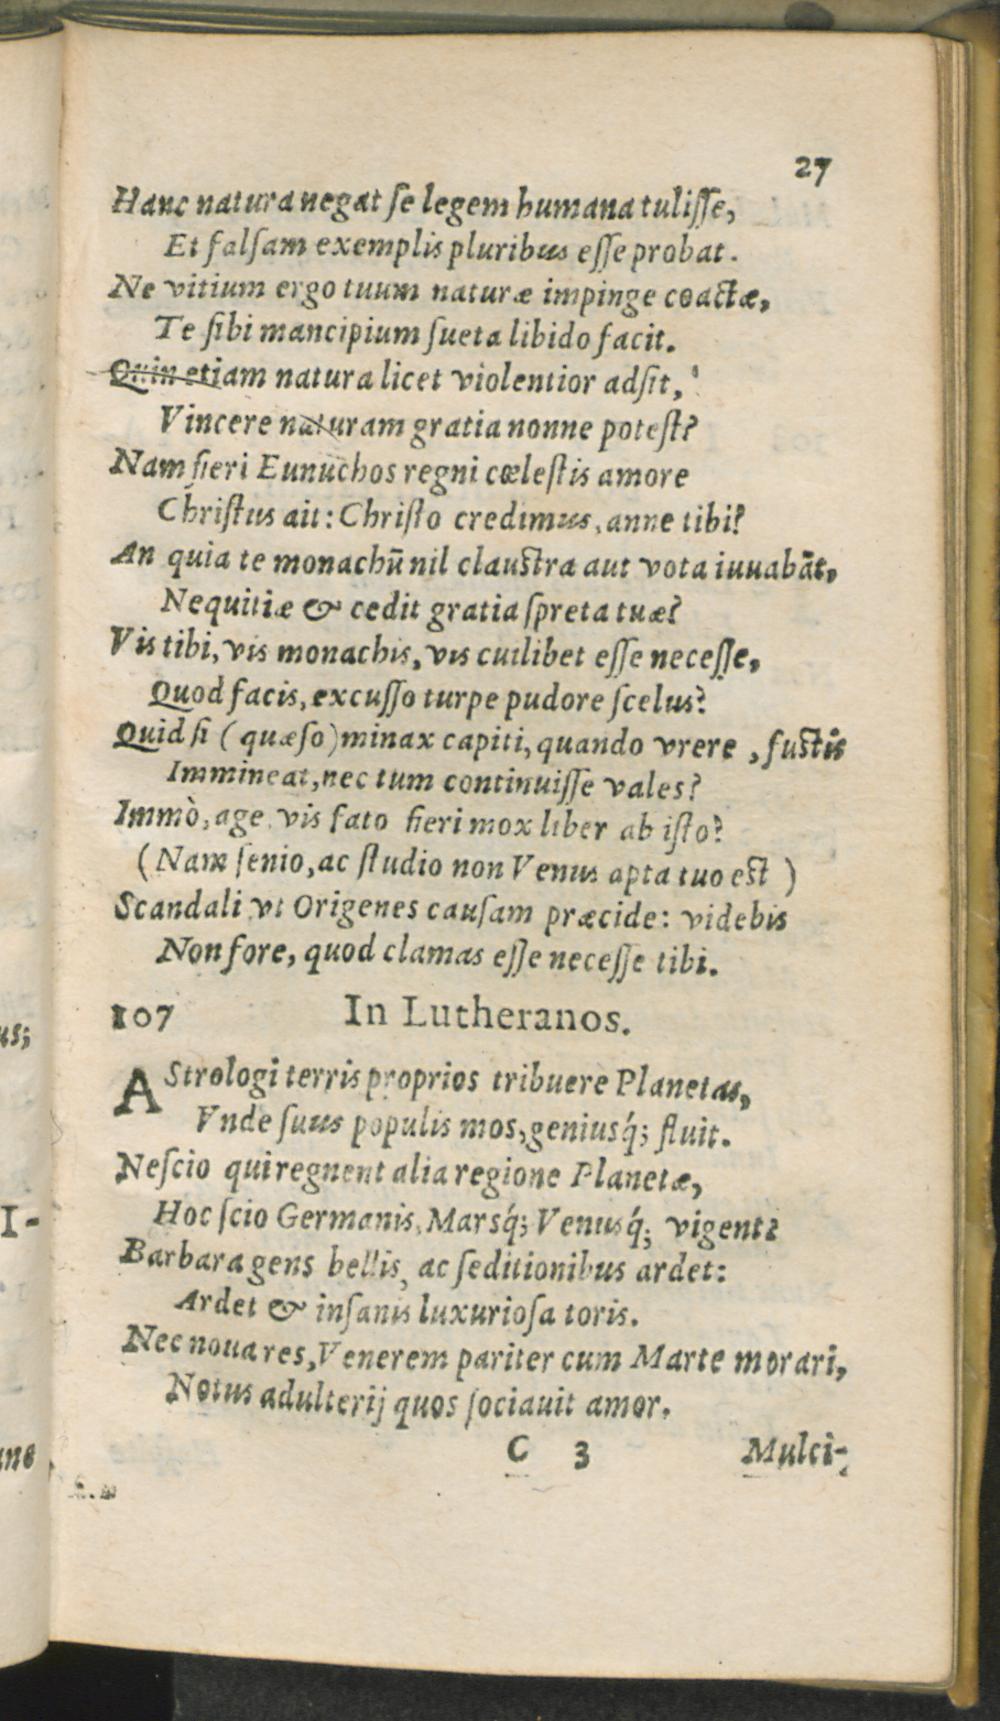 27
Hanc natura negat ſe legem humana tuliſſe,
Et falſam exemplis pluribus eſſe probat.
Ne vitium ergo tuum naturæ impinge coactæ,
Te ſibi mancipium ſueta libido facit.
Quin etiam natura licet violentior adſit,
Vincere naturam gratia nonne poteſt?
Nam fieri Eunuchos regni cœleſtis amore
Chriſtus ait: Chriſto credimus, anne tibi?
An quia te monachū nil clauſtra aut vota iuuabāt,
Nequitiæ & cedit gratia ſpreta tuæ?
Vis tibi, vis monachis, vis cuilibet eſſe neceſſe,
Quod facis, excuſſo turpe pudore ſcelus?
Quid ſi (quæſo) minax capiti, quando vrere, fuſtis
Immineat, nec tum continuiſſe vales?
Immò, age vis fato fieri mox liber ab iſto?
(Nam ſenio, ac ſtudio non Venus apta tuo eſt)
Scandali vt Origenes cauſam præcide: videbis
Non fore, quod clamas eſſe neceſſe tibi.
107 In Lutheranos.
AStrologi terris proprios tribuere Planetas,
Vnde ſuus populis mos, geniusq́; fluit.
Neſcio qui regnent alia regione Planetæ,
Hoc ſcio Germanis, Marsq́; Venusq́; vigent?
Barbara gens bellis, ac ſeditionibus ardet:
Ardet & inſanis luxurioſa toris.
Nec noua res, Venerem pariter cum Marte morari,
Notus adulterij quos ſociauit amor.
C 3 Mulci-
us;
I-